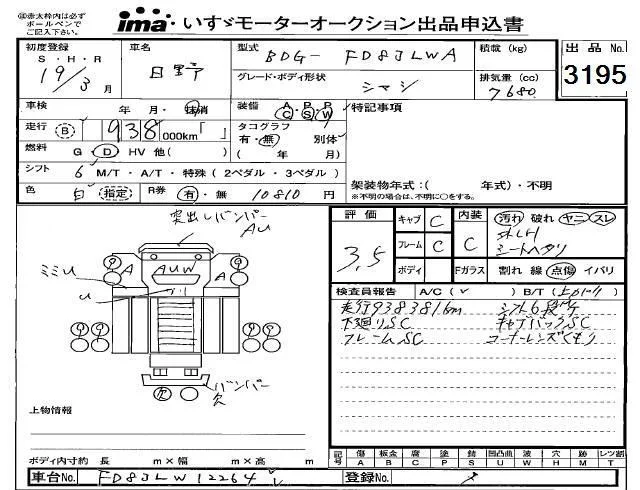 ㊟赤太枠内は必ずボールペンでご記入下さい。
ima いすゞモーターオークション出品申込書
出品No.
3195
初度登録
S・H・R
19/3月
車名
日野
型式
BDG- FD8JLWA
グレード・ボディ形状
シャシ
積載(kg)
排気量(cc)
7680
車検 年 月・抹消
装備 A・P・P C・S・W
特記事項
走行 B 938 000km「 」
タコグラフ
有・無 別体
( 年 月)
燃料 G・D HV 他( )
シフト 6 M/T・A/T・特殊(2ペダル・3ペダル)
架装物年式:( 年式)・不明
※不明の場合は、不明に○をする。
色 白 指定 R券 有・無 10810円
突出しバンパーAU
AUW
A
A
ミミU
U
バンパー欠
欠
評価
3.5
キャブ C
フレーム C
ボディ
内装 C
Fガラス
汚れ 破れ ヤニ スレ
シートヘタリ
割れ 線 点傷 イバリ
検査員報告 A/C(✓) B/T(上カーテ)
走行938381km シフト6段
下廻りSC キャブバックSC
フレームSC コーナーレンズくもり
上物情報
ボディ内寸約 長 m×幅 m×高 m
記号 傷A 板金B 腐C 塗P 錆S 凹凸曲U 波W 穴H 跡M レツ割T
車台No. FD8JLW12264
登録No.